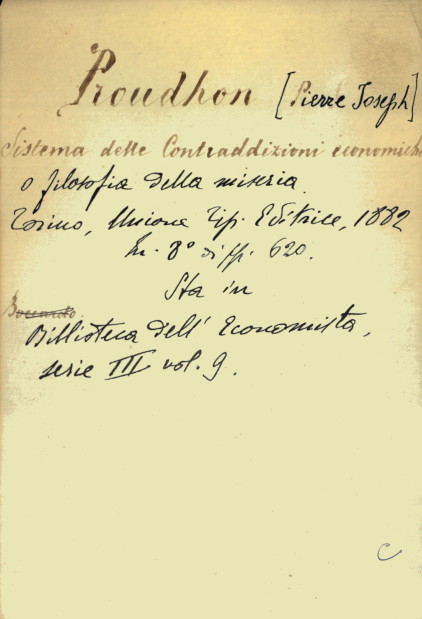 Proudhon [Pierre Joseph]
Sistema delle Contraddizioni economiche
o filosofia della miseria.
Torino, Unione Tip. Editrice, 1882
In. 8° di pp. 620.
Sta in
Boccardo
Biblioteca dell' Economista,
serie III vol. 9.
C